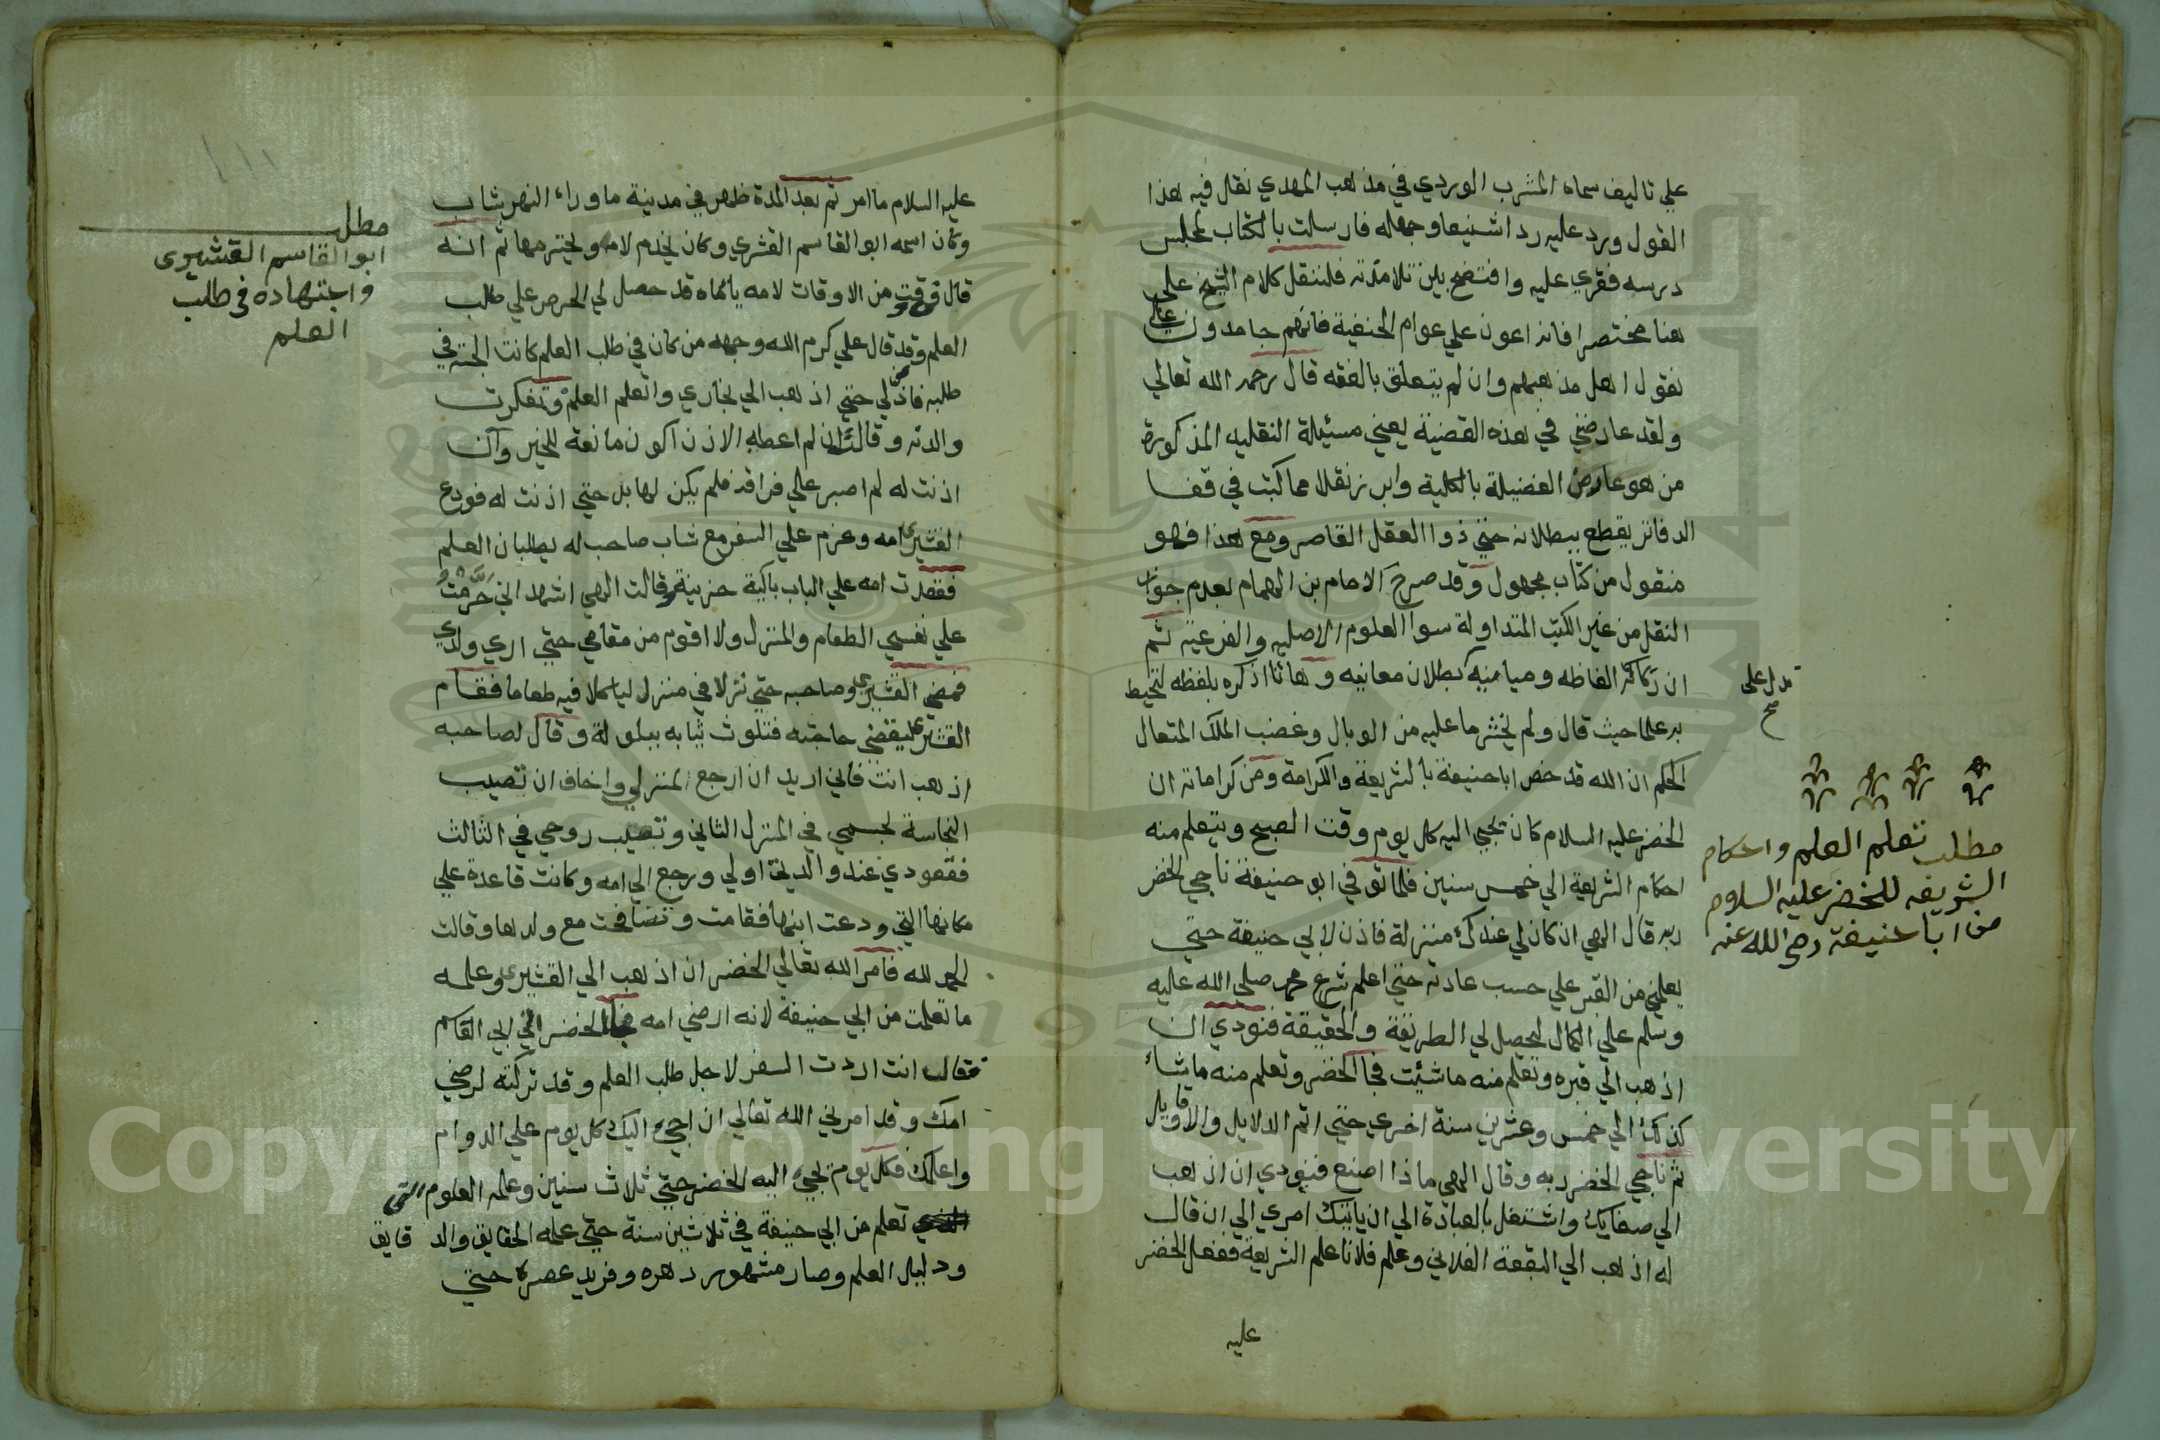 علي تاليف سماه المشرب الوردي في مذهب المهدي نقل فيه هذا
القول ورد عليه ردا شنيعا وجهله فارسلت بالكتاب لمجلس
درسه فقري عليه وافتضح بين تلامذته فلننقل كلام الشيخ علي
هنا مختصرا فانه اعون علي عوام الحنفية فانهم جامدون علي
نقول اهل مذهبهم وان لم يتعلق بالفقه قال رحمه الله تعالي
ولقد عارضني في هذه القضية يعني مسئيلة النقليه المذكورة
من هو عار من الفضيلة بالكلية وابرز نقلا مما كتب في قفا
الدفاتر يقطع ببطلانه حتي ذوا العقل القاصر ومع هذا فهو
منقول من كتاب مجهول وقد صرح الامام بن الهمام بعدم جواز
النقل من غير الكتب المتداولة سوا العلوم الاصليه والفرعيه ثم
ان ركاكة الفاظه ومبانيه كبطلان معانيه وها انا اذكره بلفظه لتحيط
تدل علي
صح
به علما حيث قال ولم يخش ما عليه من الوبال وغضب الملك المتعال
اعلم ان الله قد خص ابا حنيفة بالشريعة والكرامة ومن كراماته ان
الخضر عليه السلام كان يجيي اليه كل يوم وقت الصبح ويتعلم منه
احكام الشريعة الي خمس سنين فلما توفي ابو حنيفة ناجي الخضر
ربه قال الهي ان كان لي عندك منزلة فاذن لابي حنيفة حتي
يعلمني من القبر علي حسب عادته حتي اعلم شرع محمد صلي الله عليه
وسلم علي الكمال ليحصل لي الطريقة والحقيقة فنودي ان
اذهب الي قبره وتعلم منه ما شئت فجا الخضر وتعلم منه ما شاء
كذلك الي خمس وعشرين سنة اخري حتي اتم الدلايل والاقاويل
ثم ناجي الخضر ربه وقال الهي ماذا اصنع فنودي ان اذهب
الي صفايك واشتغل بالعبادة الي ان ياتيك امري الي ان قال
له اذهب الي البقعة الفلاني وعلم فلانا علم الشريعة ففعل الخضر
عليه
مطلب تعلم العلم واحكام
الشريفه للخضر عليه السلام
من ابا حنيفة رضي الله عنه
عليه السلام ما امر ثم بعد المدة ظهر في مدينة ما وراء النهر شاب
وكان اسمه ابو القاسم القشري وكان يخدم لامه ويحترمها ثم انه
قال وقت من الاوقات لامه يا اماه قد حصل لي الحرص علي طلب
العلم وقد قال علي كرم الله وجهه من كان في طلب العلم كانت الجنة في
طلبه فاذني لي حتي اذهب الي بخاري واتعلم العلم وتفكرت
والدته وقالت ان لم اعطه الاذن اكون مانعة للخير وان
اذنت له لم اصبر علي فراقه فلم يكن لها بد حتي اذنت له فودع
القشيري امه وعزم علي السفر مع شاب صاحب له يطلبان العلم
فقعدت امه علي الباب باكية حزينة وقالت الهي اشهد اني حرمت
علي نفسي الطعام والمنزل ولا اقوم من مقامي حتي اري ولدي
فمضي القشيري وصاحبه حتي نزلا في منزل لياكلا فيه طعاما فقام
القشيري ليقضي حاجته فتلوث ثيابه ببلولة وقال لصاحبه
اذهب انت فاني اريد ان ارجع لمنزلي واخاف ان تصيب
النجاسة لجسمي في المنزل الثاني وتصيب روحي في الثالث
فقعودي عند والدتي اولي ورجع الي امه وكانت قاعدة علي
مكانها التي ودعت ابنها فقامت وتصافحت مع ولدها وقالت
الحمد لله فامر الله تعالي الخضر ان اذهب الي القشيري وعلمه
ما تعلمت من ابي حنيفة لانه ارضي امه فجا الخضر الي ابي القاسم
فقال انت اردت السفر لاجل طلب العلم وقد تركته لرضي
امك وقد امرني الله تعالي ان اجيء اليك كل يوم علي الدوام
واعلمك فكل يوم يجيء اليه الخضر حتي ثلاث سنين وعلمه العلوم التي
تعلم من ابي حنيفة في ثلاثين سنة حتي علمه الحقايق والدقايق
ودليل العلم وصار مشهور دهره وفريد عصره حتي
مطلب
ابو القاسم القشيري
واجتهاده في طلب
العلم
Copyright © King Saud University
1957